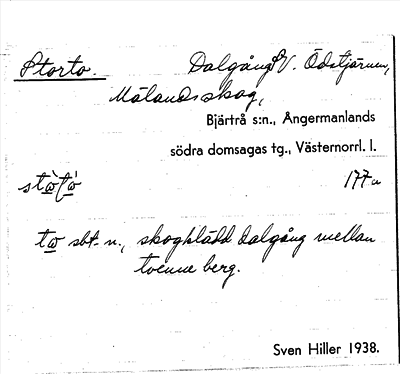 Storto. Dalgång V. Ödstjärnen,
Målandsskog,
Bjärtrå s:n., Ångermanlands
södra domsagas tg., Västernorrl. l.
177 a
sbt. n., skogklädd dalgång mellan
tvenne berg.
Sven Hiller 1938.